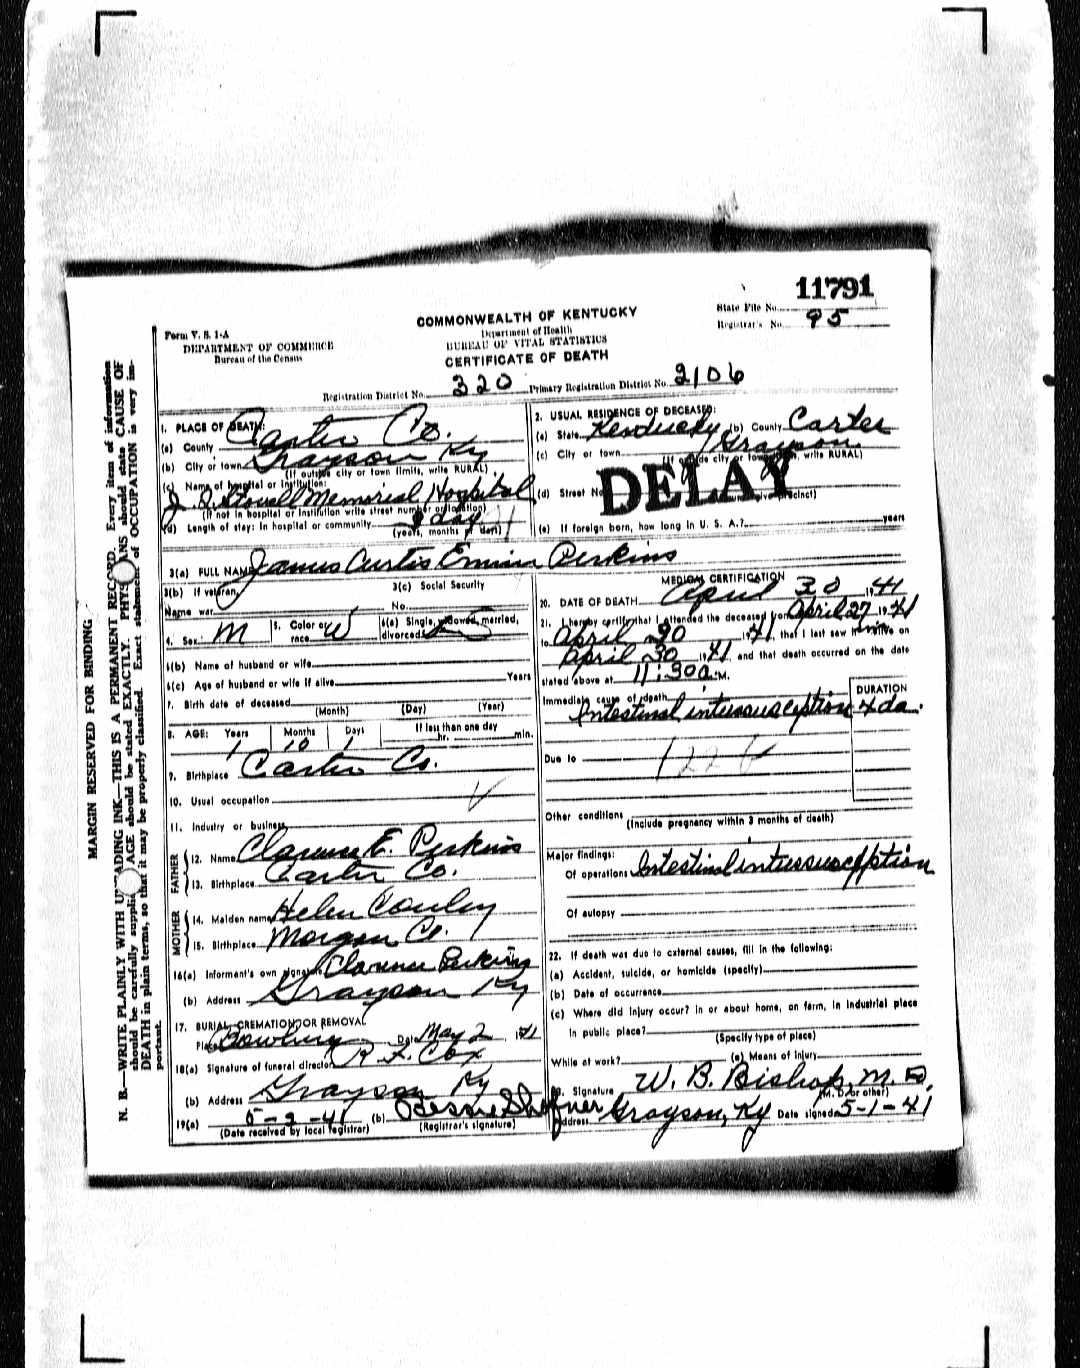 11791
State File No.
Registrar's No. 95
COMMONWEALTH OF KENTUCKY
Department of Health
BUREAU OF VITAL STATISTICS
CERTIFICATE OF DEATH
Form V. S. 1-A
DEPARTMENT OF COMMERCE
Bureau of the Census
Registration District No. 320 Primary Registration District No. 2106
MARGIN RESERVED FOR BINDING
N. B.—WRITE PLAINLY WITH UNFADING INK—THIS IS A PERMANENT RECORD. Every item of information
should be carefully supplied. AGE should be stated EXACTLY. PHYSICIANS should state CAUSE OF
DEATH in plain terms, so that it may be properly classified. Exact statement of OCCUPATION is very im-
portant.
1. PLACE OF DEATH:
(a) County Carter Co.
(b) City or town Grayson Ky
(If outside city or town limits, write RURAL)
(c) Name of hospital or institution:
J. Q. Stovall Memorial Hospital
(If not in hospital or institution write street number or location)
(d) Length of stay: In hospital or community day
(years, months or days)
2. USUAL RESIDENCE OF DECEASED:
(a) State Kentucky (b) County Carter
(c) City or town Grayson
(If outside city or town limits, write RURAL)
(d) Street No.
DELAY
(e) If foreign born, how long in U. S. A.? years
3(a) FULL NAME James Curtis Ermin Perkins
3(b) If veteran,
Name war
3(c) Social Security
No.
4. Sex: M
5. Color or
race W
6(a) Single, widowed, married,
divorced S
6(b) Name of husband or wife
6(c) Age of husband or wife if alive Years
7. Birth date of deceased
(Month) (Day) (Year)
8. AGE: Years Months Days If less than one day
1 10 1 hr. min.
9. Birthplace Carter Co.
10. Usual occupation
11. Industry or business
FATHER
12. Name Clarence E. Perkins
13. Birthplace Carter Co.
MOTHER
14. Maiden name Helen Conley
15. Birthplace Morgan Co.
16(a) Informant's own signature Clarence Perkins
(b) Address Grayson Ky
17. BURIAL, CREMATION, OR REMOVAL
Place Date May 2, 1941
18(a) Signature of funeral director R F. Cox
(b) Address Grayson Ky
19(a) 5-2-41 (b) Bessie Shofner
(Date received by local registrar) (Registrar's signature)
MEDICAL CERTIFICATION
20. DATE OF DEATH April 30, 1941
21. I hereby certify that I attended the deceased from April 27, 1941
to April 30 1941, that I last saw him alive on
April 30 1941, and that death occurred on the date
stated above at 11:30 a. M.
Immediate cause of death
Intestinal intussusception
DURATION
4 da.
Due to
122 b
Other conditions
(Include pregnancy within 3 months of death)
Major findings:
Of operations Intestinal intussusception
Of autopsy
22. If death was due to external causes, fill in the following:
(a) Accident, suicide, or homicide (specify)
(b) Date of occurrence
(c) Where did injury occur? In or about home, on farm, in industrial place
in public place?
(Specify type of place)
While at work? (e) Means of injury
23. Signature W. B. Bishop, M. D.
(M. D. or other)
Address Grayson, Ky Date signed 5-1-41